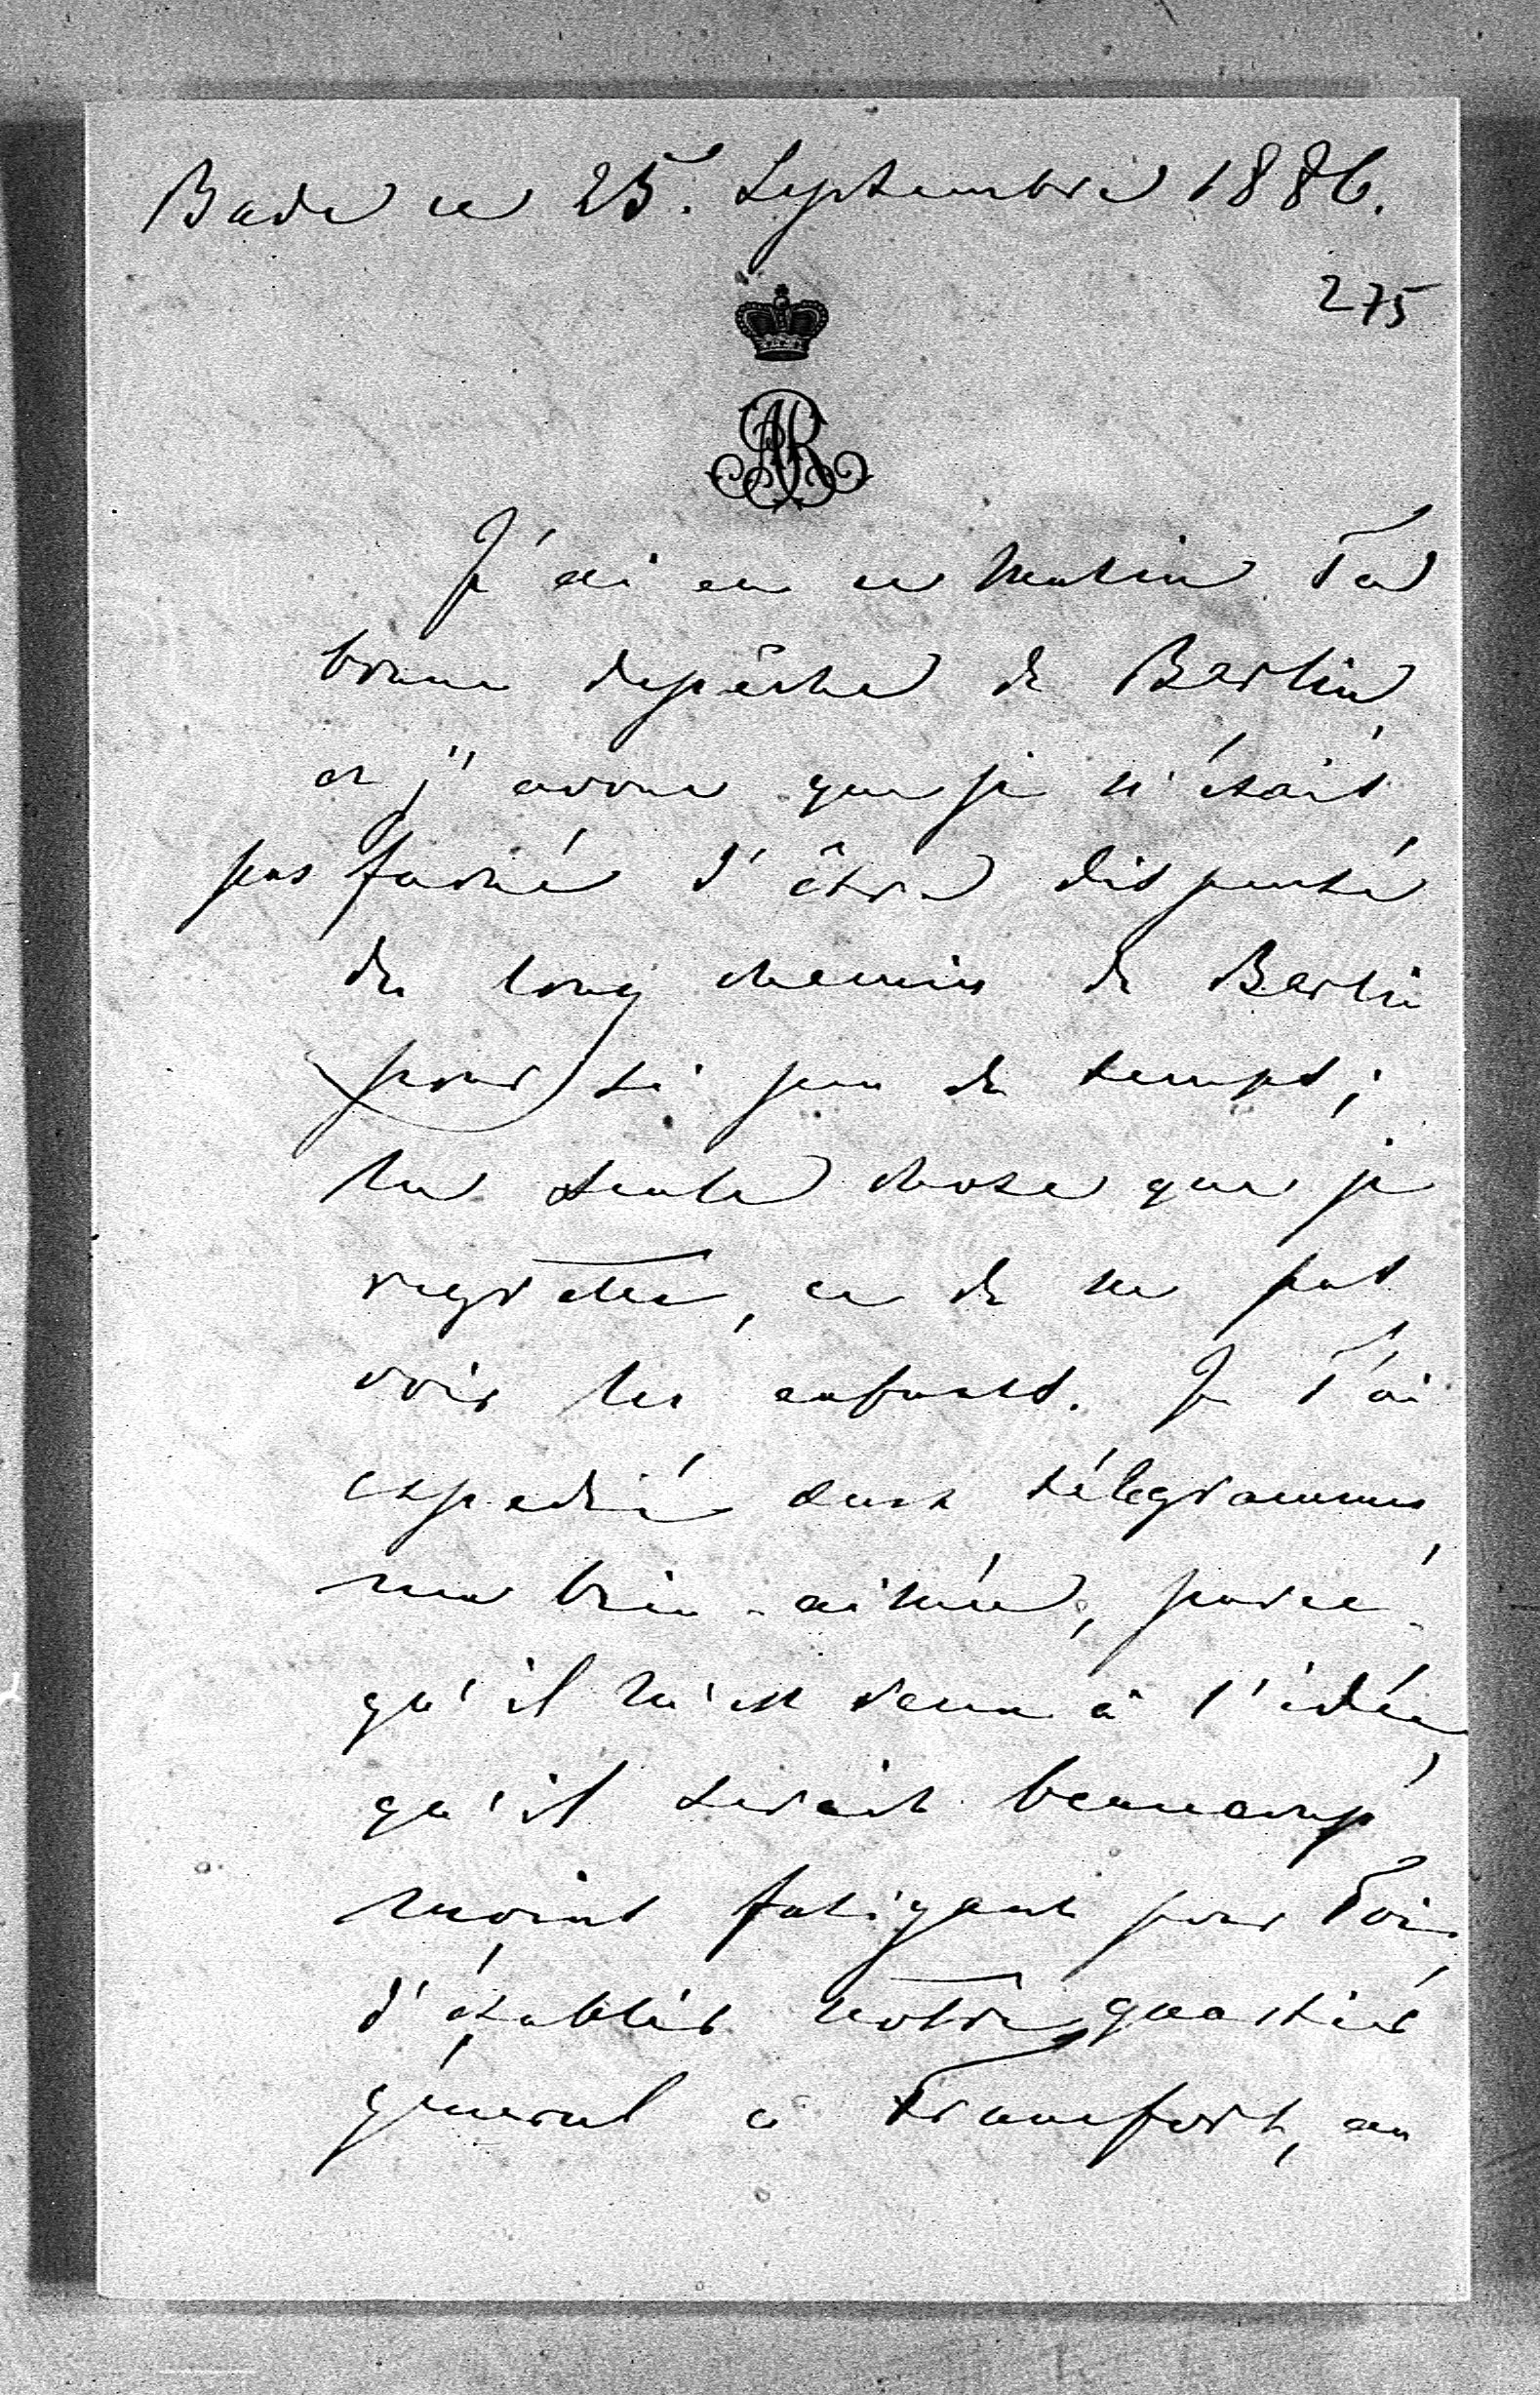 Bade ce 25. Septembre 1886.
275
AR
J'ai eu ce matin Ta
bonne dépêche de Berlin,
et j'avoue que je n'étais
pas faché d'être dispensé
du long chemin de Berlin
pour si peu de temps;
la seule chose que je
regrette, ce de ne pas
voir les enfants. Je T'ai
expedié deux télegrammes,
ma bien-aimée, parce-
qu'il m'est venu à l'idée,
qu'il serait beaucoup
moins fatigant pour Toi,
d'établir notre quartier
géneral à Francfort, au